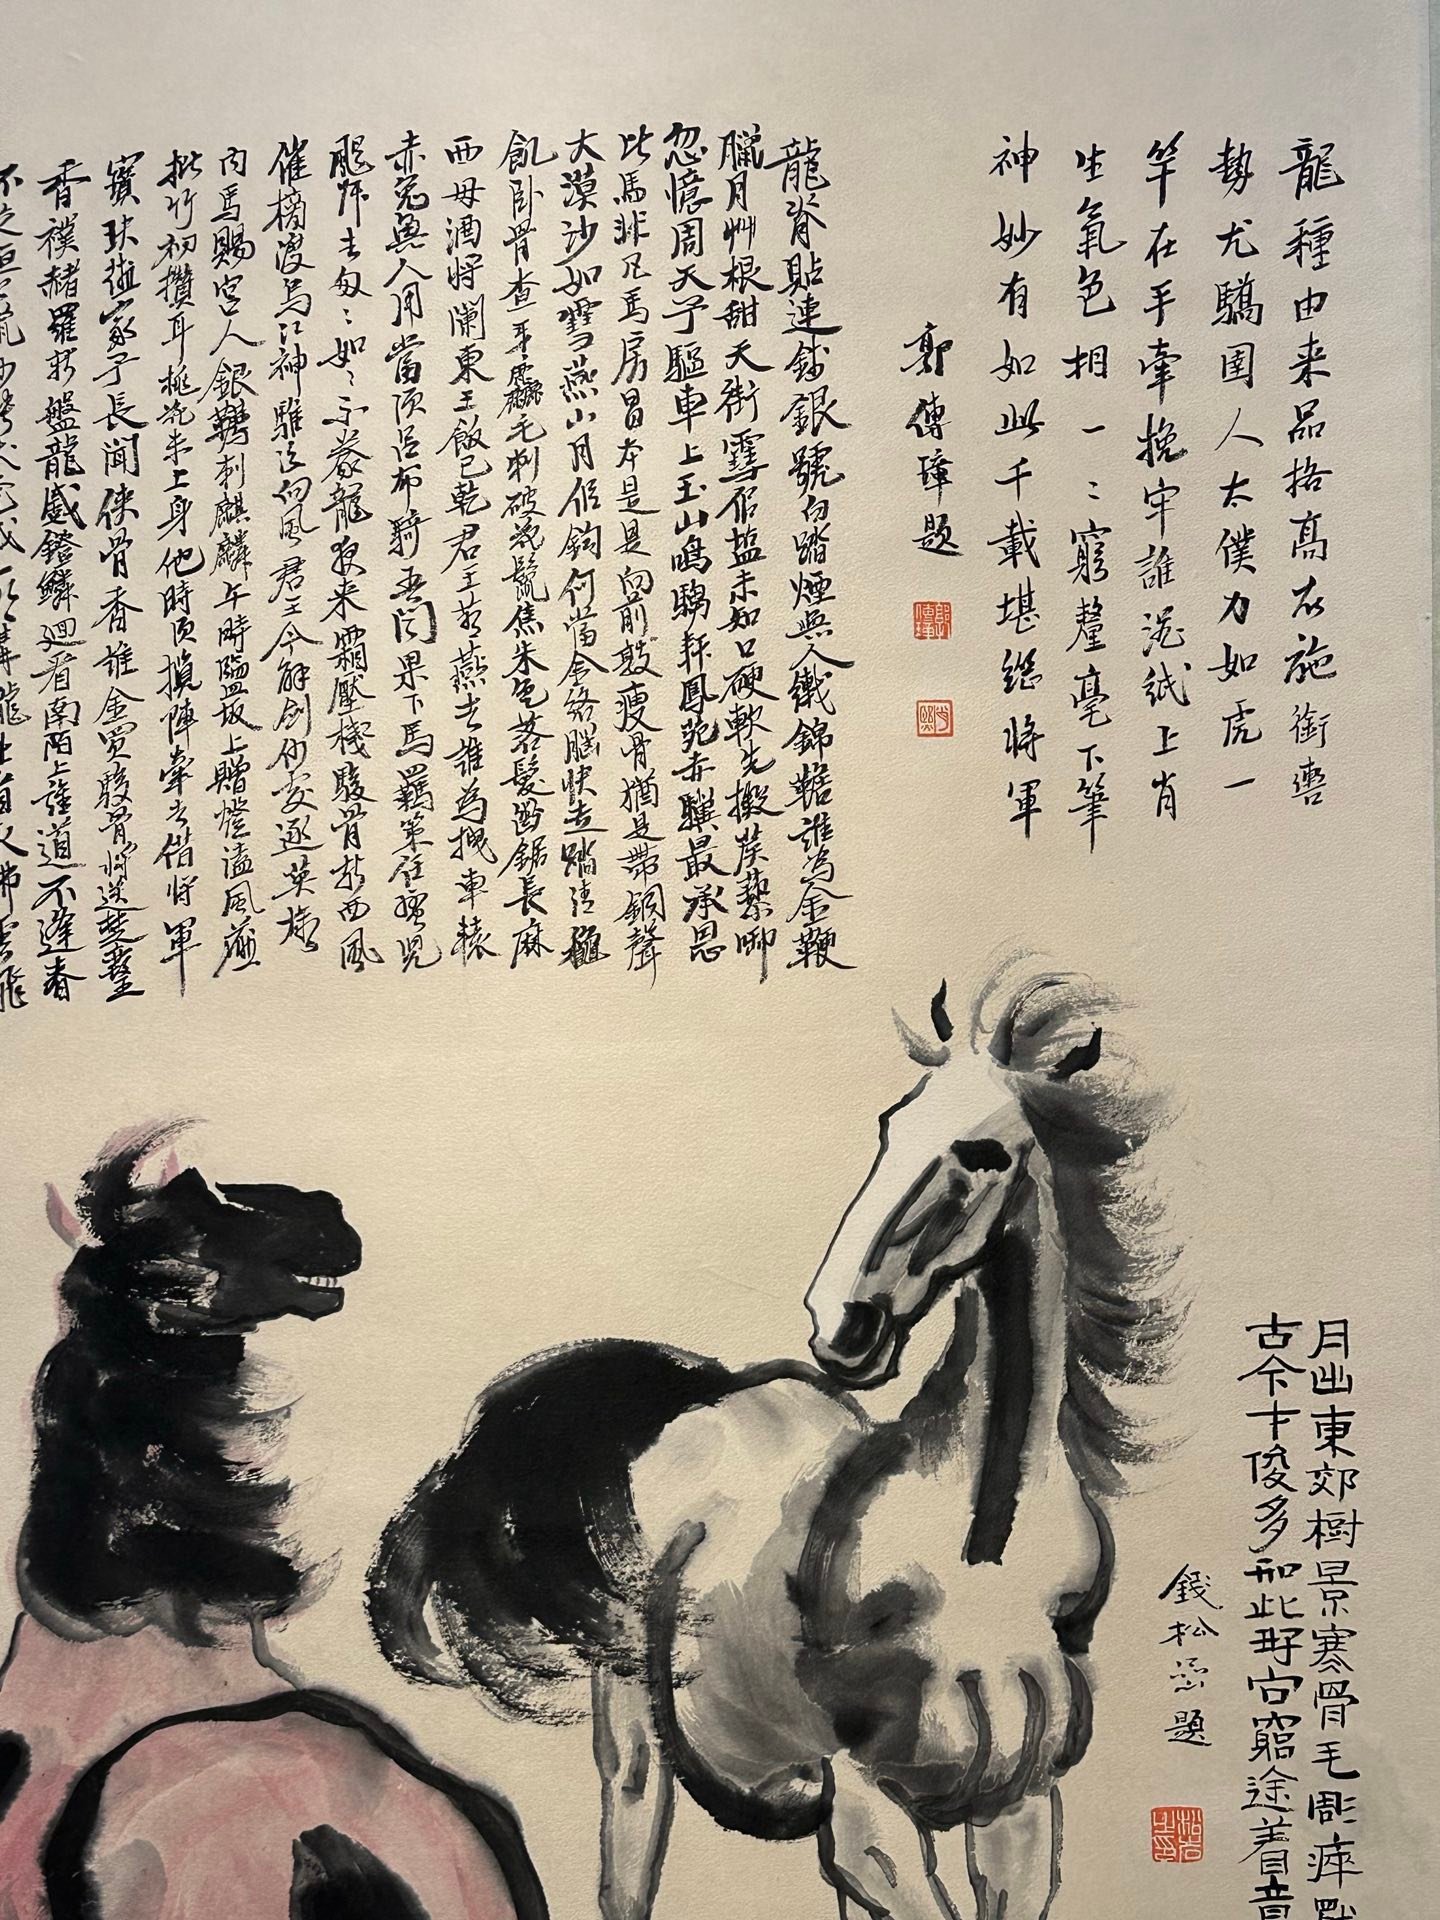 龍種由来品格高不施銜轡
勢尤驕圉人太僕力如虎一
竿在手牽挽牢誰從紙上肖
生氣色相一ミ窮釐毫下筆
神妙有如此千載堪繼將軍
郭傳璋題
龍脊貼連錢銀蹄白踏煙無人織錦韂誰為金鞭
臘月艸根甜天街雪似鹽未知口硬軟先擬蒺藜啣
忽憶周天子驅車上玉山鳴騶辭鳳苑赤驥最承恩
此馬非凡馬房星本是星向前敲瘦骨猶是帶銅聲
大漠沙如雪燕山月似鈎何當金絡腦快走踏清秋
飢臥骨查牙麤毛刺破花鬣焦朱色落髮斷鋸長麻
西母酒將闌東王飯已乾君王若燕去誰為拽車轅
赤兔無人用當須呂布騎吾聞果下馬羈策任蠻兒
颼叔去匆ミ如ミ不豢龍夜来霜壓棧駿骨折西風
催榜渡烏江神騅泣向風君王今解劍何處逐英雄
內馬賜宮人銀韉刺麒麟午時鹽坂上蹭蹬溘風塵
批竹初攢耳桃花未上身他時須攪陣牽去借將軍
寶玦誰家子長聞俠骨香堆金買駿骨將送楚襄王
香襆赭羅新盤龍蹙鐙鱗迴看南陌上誰道不逢春
月出東郊樹景寒骨毛彫瘁
古今才俊多和此好向窮途着
錢松嵒題